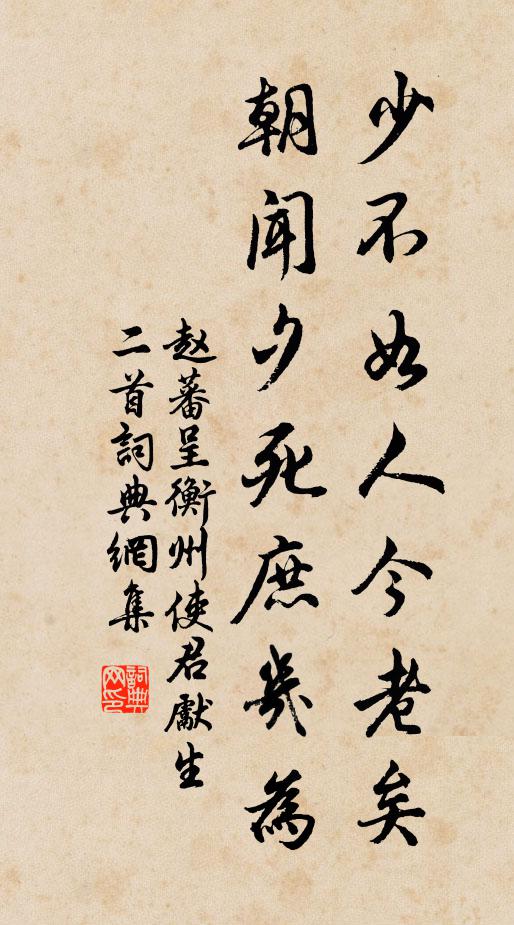 少不如人今老矣
朝闻夕死庶几為
赵蕃呈衡州使君獻生
二首詞典網集
詞典网印